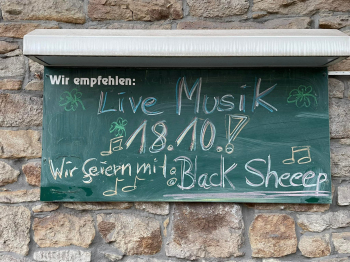 Wir empfehlen:
Live Musik
18.10.!
Wir feiern mit: Back Sheeep